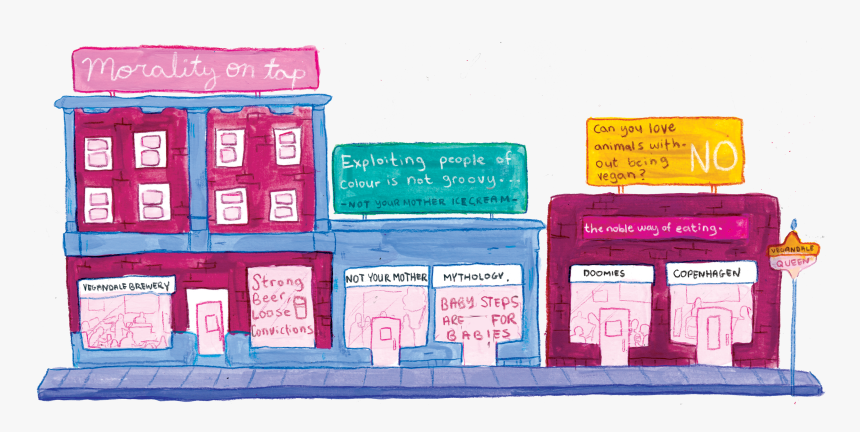 Morality on tap
Exploiting people of
colour is not groovy...
-NOT YOUR MOTHER ICECREAM-
Can you love
animals with-
out being
vegan?
NO
the noble way of eating.
VEGANDALE BREWERY
Strong
Beer,
Loose
Convictions
NOT YOUR MOTHER
MYTHOLOGY.
BABY STEPS
ARE FOR
BABIES
DOOMIES
COPENHAGEN
VEGANDALE
QUEEN